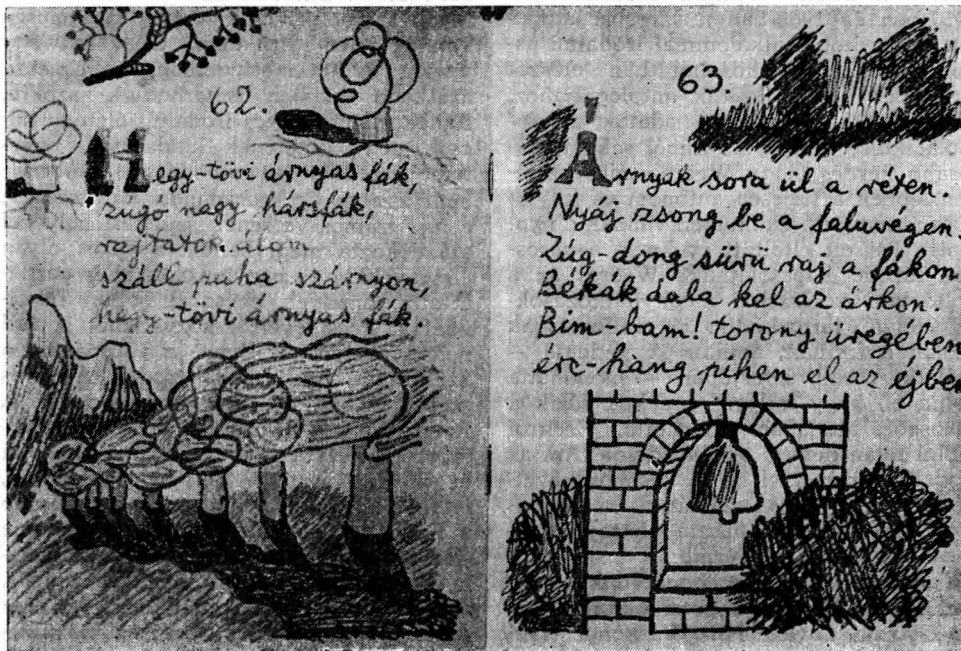 62.
Hegy-tövi árnyas fák,
zúgó nagy hársfák,
rajtatok álom
száll puha szárnyon,
hegy-tövi árnyas fák.
63.
Árnyak sora ül a réten.
Nyáj zsong be a faluvégen.
Zúg-dong sürü raj a fákon
Békák dala kel az árkon.
Bim-bam! torony üregében
érc-hang pihen el az éjben